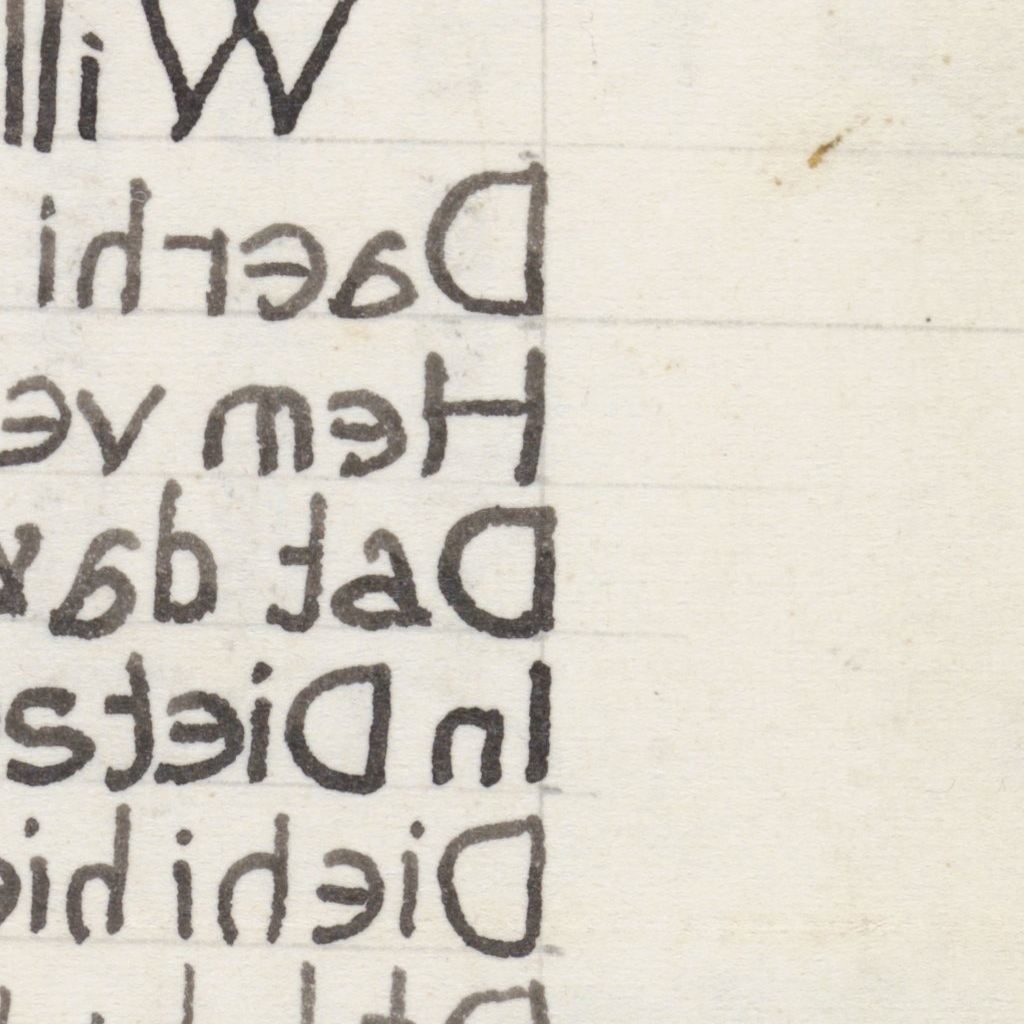 Will
Daerhi
Hem ve
Dat dav
In Diets
Diehi hie